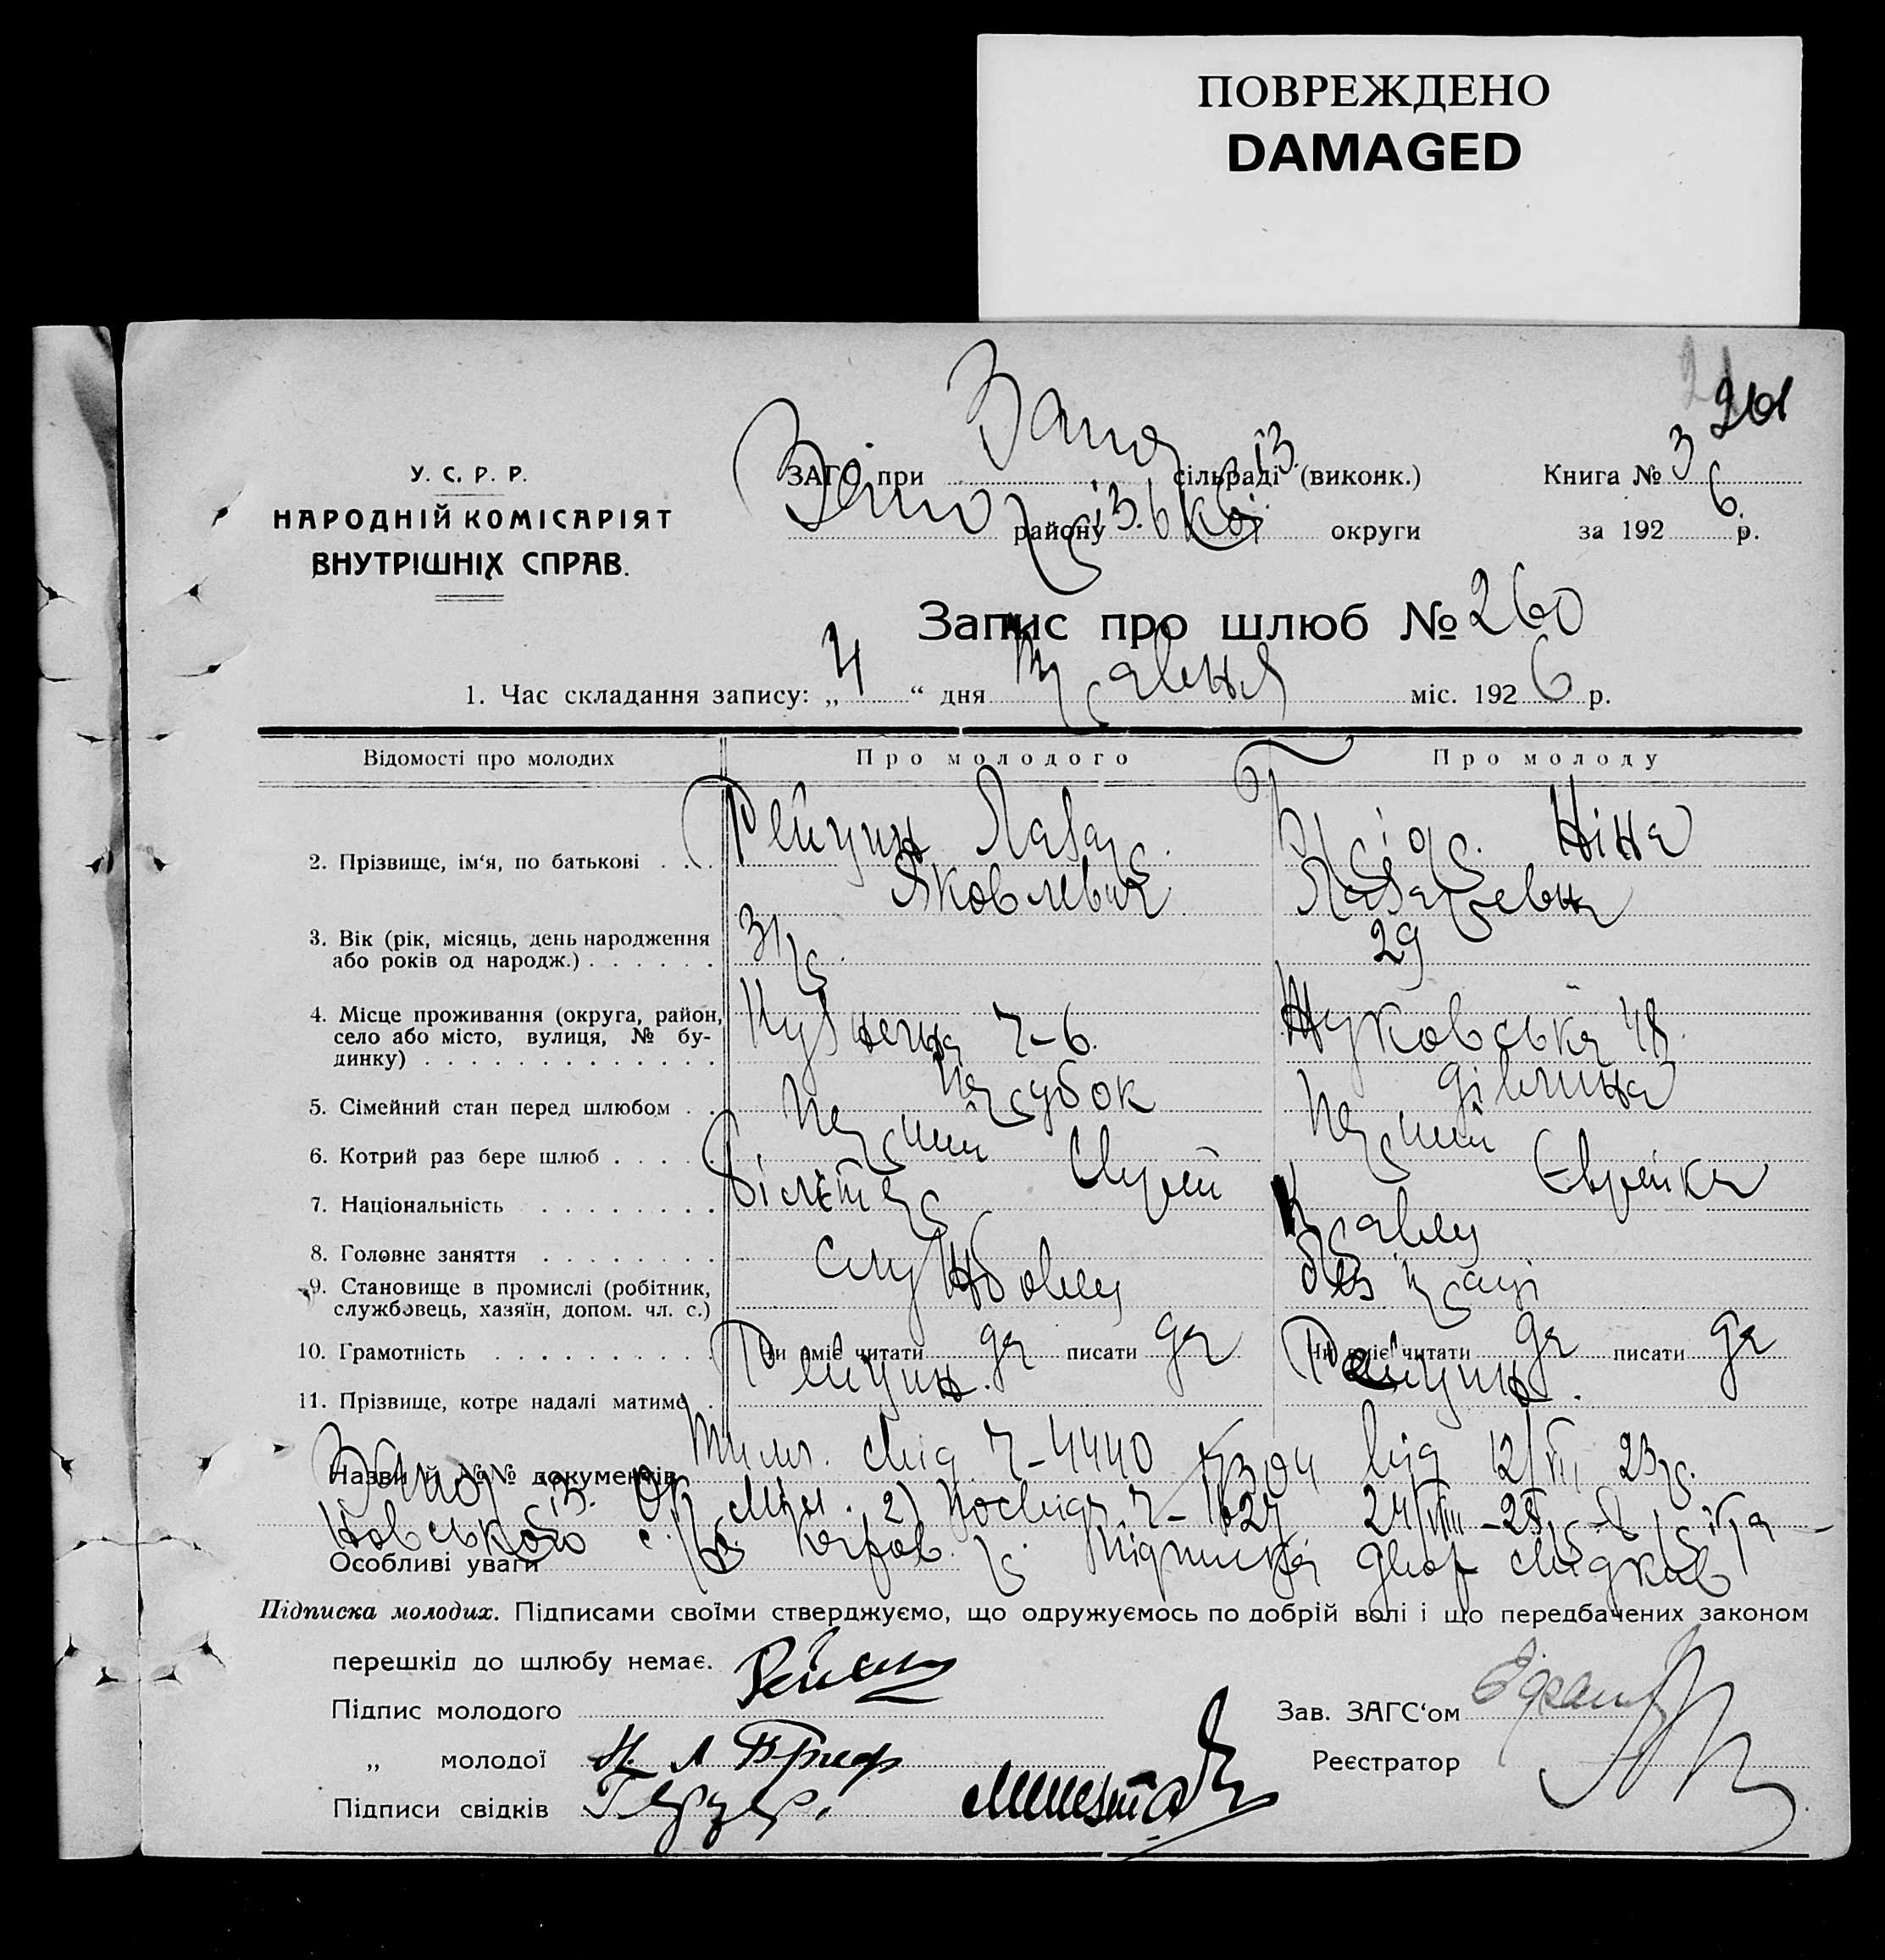 ПОВРЕЖДЕНО
DAMAGED
261
У. С. Р. Р.
НАРОДНІЙ КОМІСАРІЯТ
ВНУТРІШНІХ СПРАВ.
ЗАГС при Запоріз. сільраді (виконк.)
району Запоріз.ької округи
Книга № 3
за 192 6 р.
Запис про шлюб № 260
1. Час складання запису: „ 4 “ дня травня міс. 192 6 р.
Відомості про молодих Про молодого Про молоду
2. Прізвище, ім‘я, по батькові . . . Рейдин Лазар Яковлевич Ніна Лазаревна
3. Вік (рік, місяць, день народження або років од народж.) . . . . . . 31 р. 29
4. Місце проживання (округа, район, село або місто, вулиця, № будинку) . . . . . . . . . . . . . Кузнечна ч-6. Жуковська 48.
5. Сімейний стан перед шлюбом . . парубок дівчина
6. Котрий раз бере шлюб . . . . . перший перший
7. Національність . . . . . . . . Єврей Єврейка
8. Головне заняття . . . . . . . . білетер Кравец
9. Становище в промислі (робітник, службовець, хазяїн, допом. чл. с.) службовец без праці
10. Грамотність . . . . . . . . . . Чи вміє читати да писати да Чи вміє читати да писати да
11. Прізвище, котре надалі матиме . Рейдин. Рейдин.
Назви й №№ документів від 12/VII 23 р.
Запоріз. 2) Посвідч.
Особливі уваги Підписка двох свідків
Підписка молодих. Підписами своїми стверджуємо, що одружуємось по добрій волі і що передбачених законом
перешкід до шлюбу немає.
Підпис молодого
„ молодої Н. Л
Підписи свідків
Зав. ЗАГС‘ом
Реєстратор